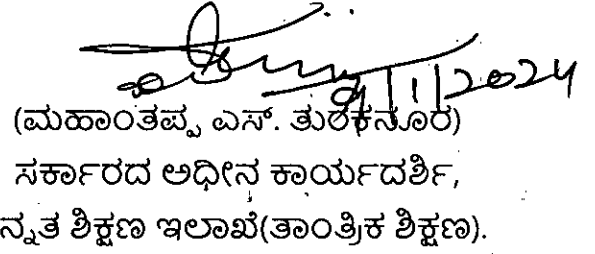 9/1/2024
(ಮಹಾಂತಪ್ಪ ಎಸ್. ತುರಕನೂರ)
ಸರ್ಕಾರದ ಅಧೀನ ಕಾರ್ಯದರ್ಶಿ,
ನ್ನತ ಶಿಕ್ಷಣ ಇಲಾಖೆ(ತಾಂತ್ರಿಕ ಶಿಕ್ಷಣ).